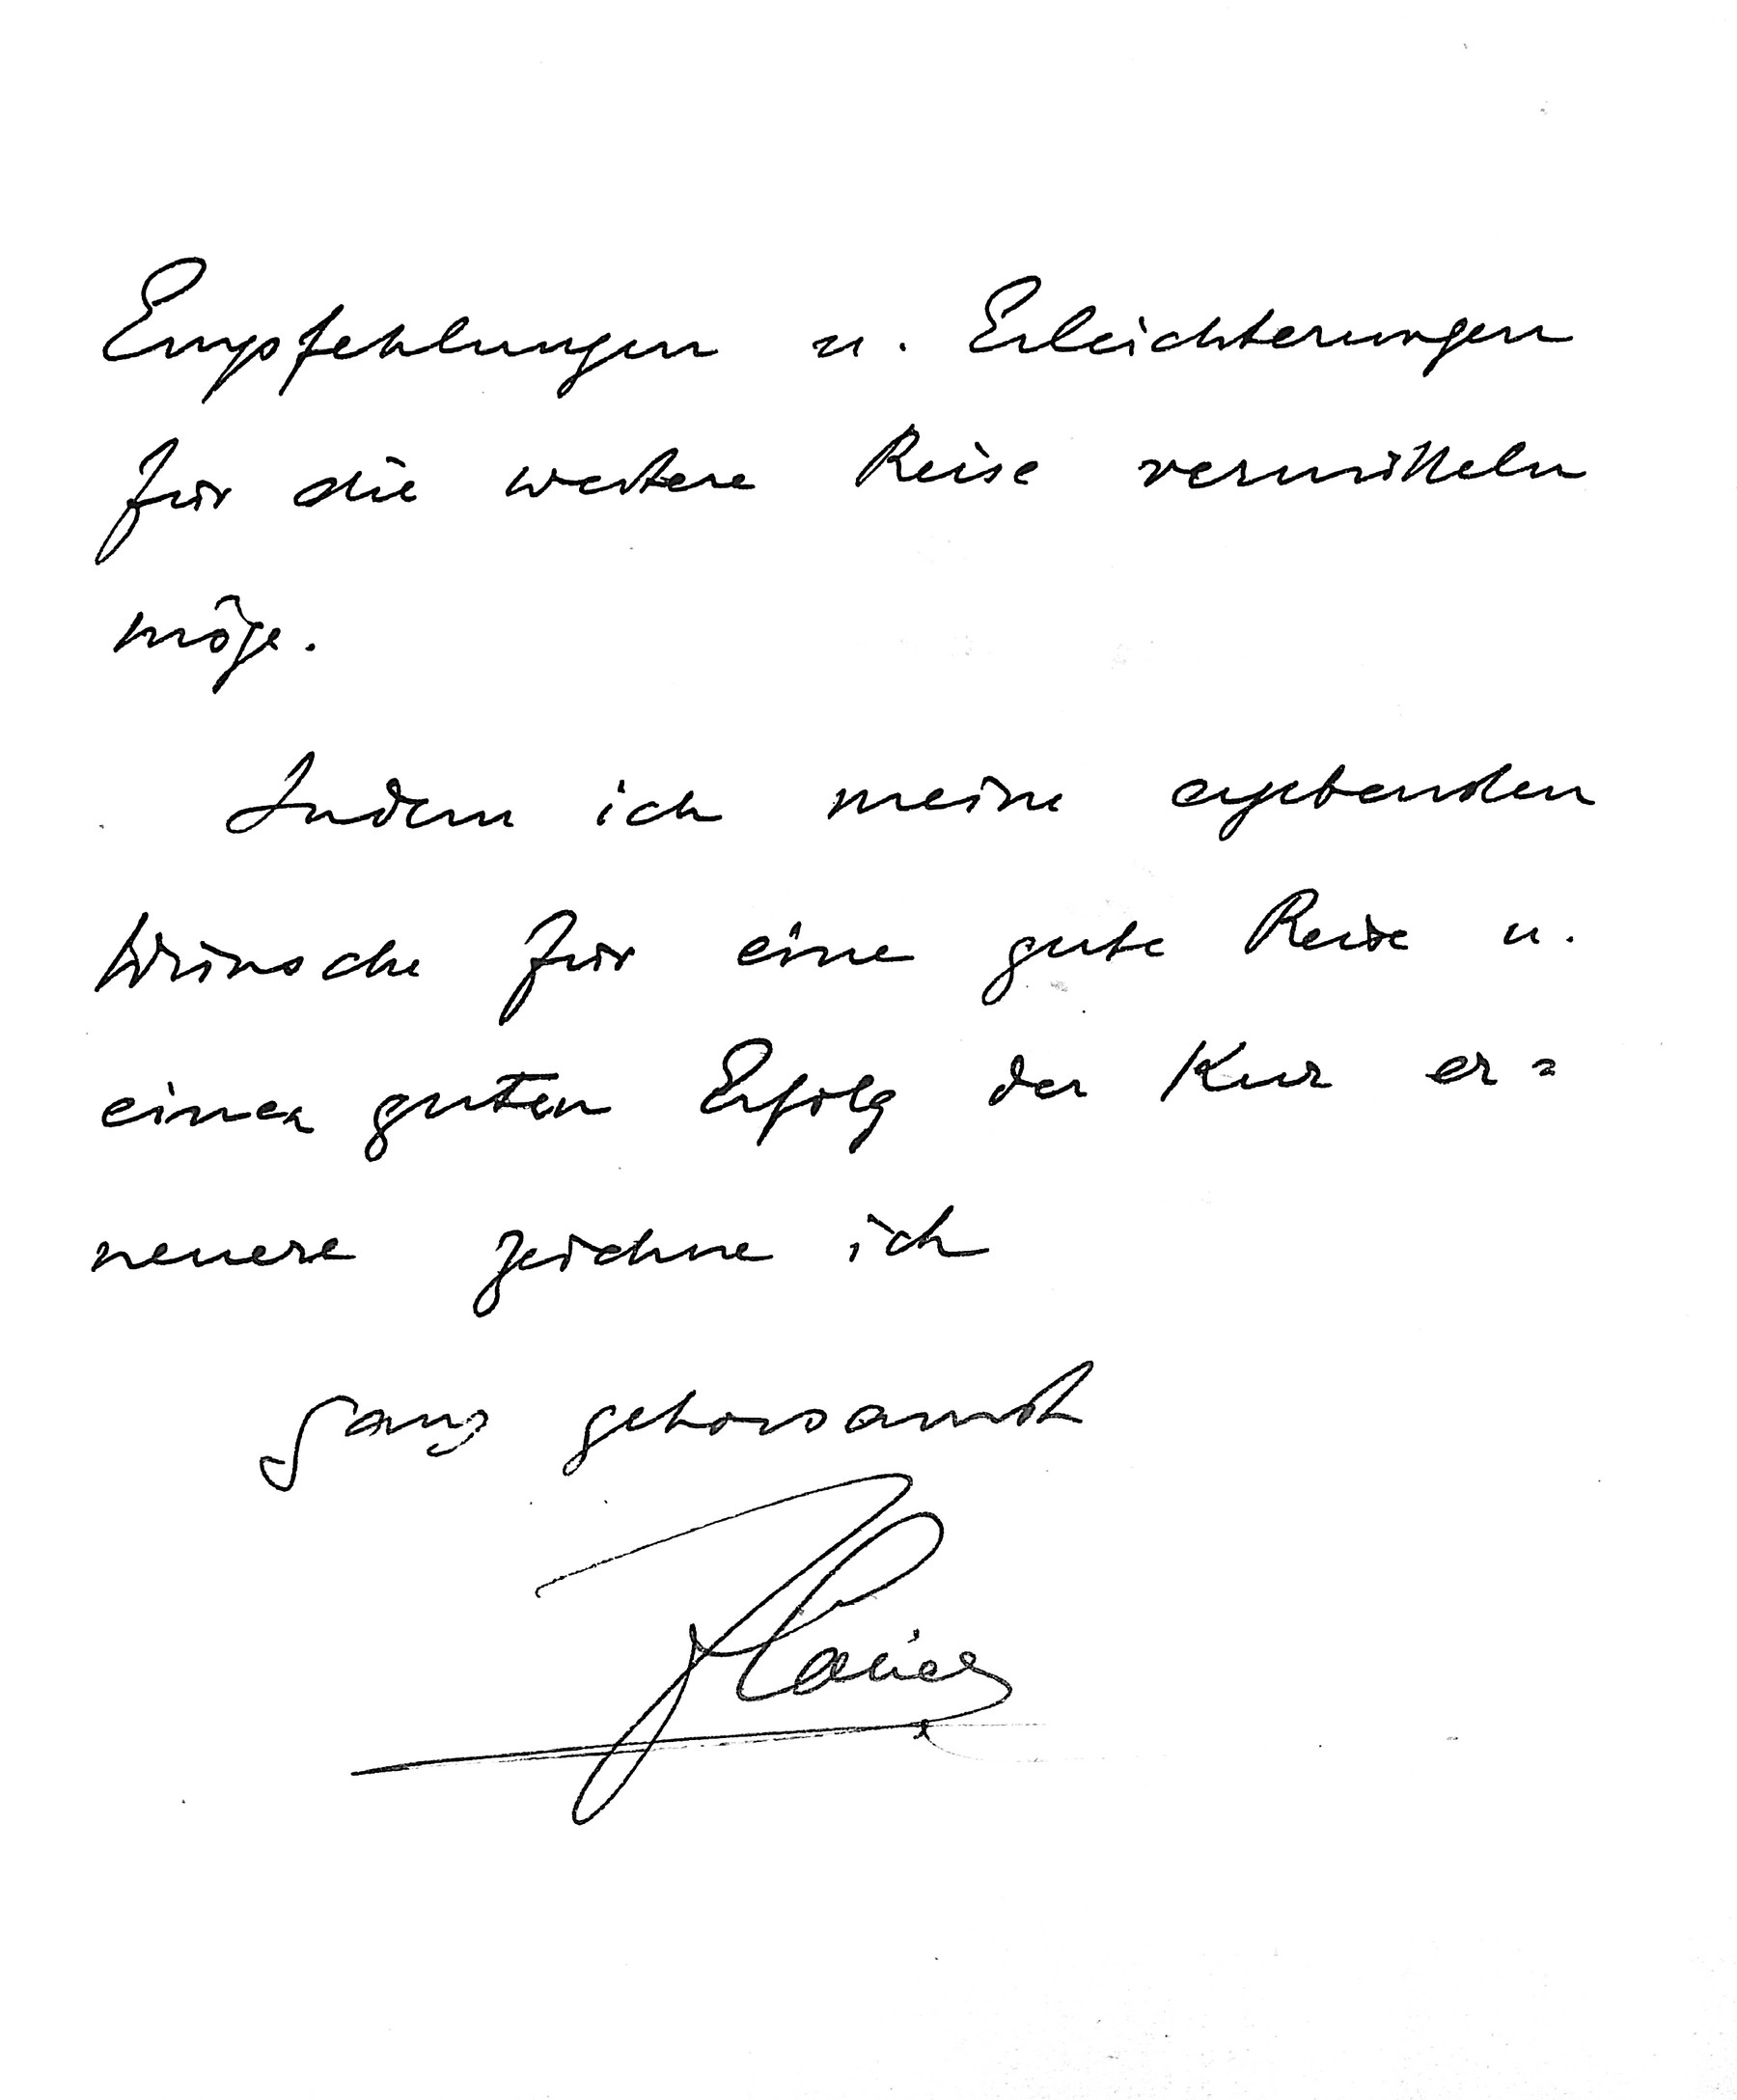 Empfehlungen u. Erleichterungen
für die weitere Reise vermitteln
möge.
Indem ich meine ergebensten
Wünsche für eine gute Reise u.
einen guten Erfolg der Kur er=
neuere zeichne ich
Ganz gehorsamst